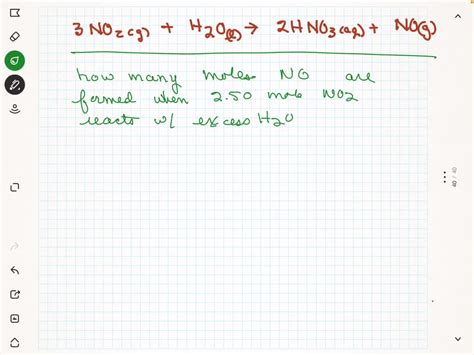 3 NO₂(g) + H₂O(l) → 2HNO₃(aq) + NO(g)
how many moles NO are
formed when 2.50 mole NO2
reacts w/ excess H₂O